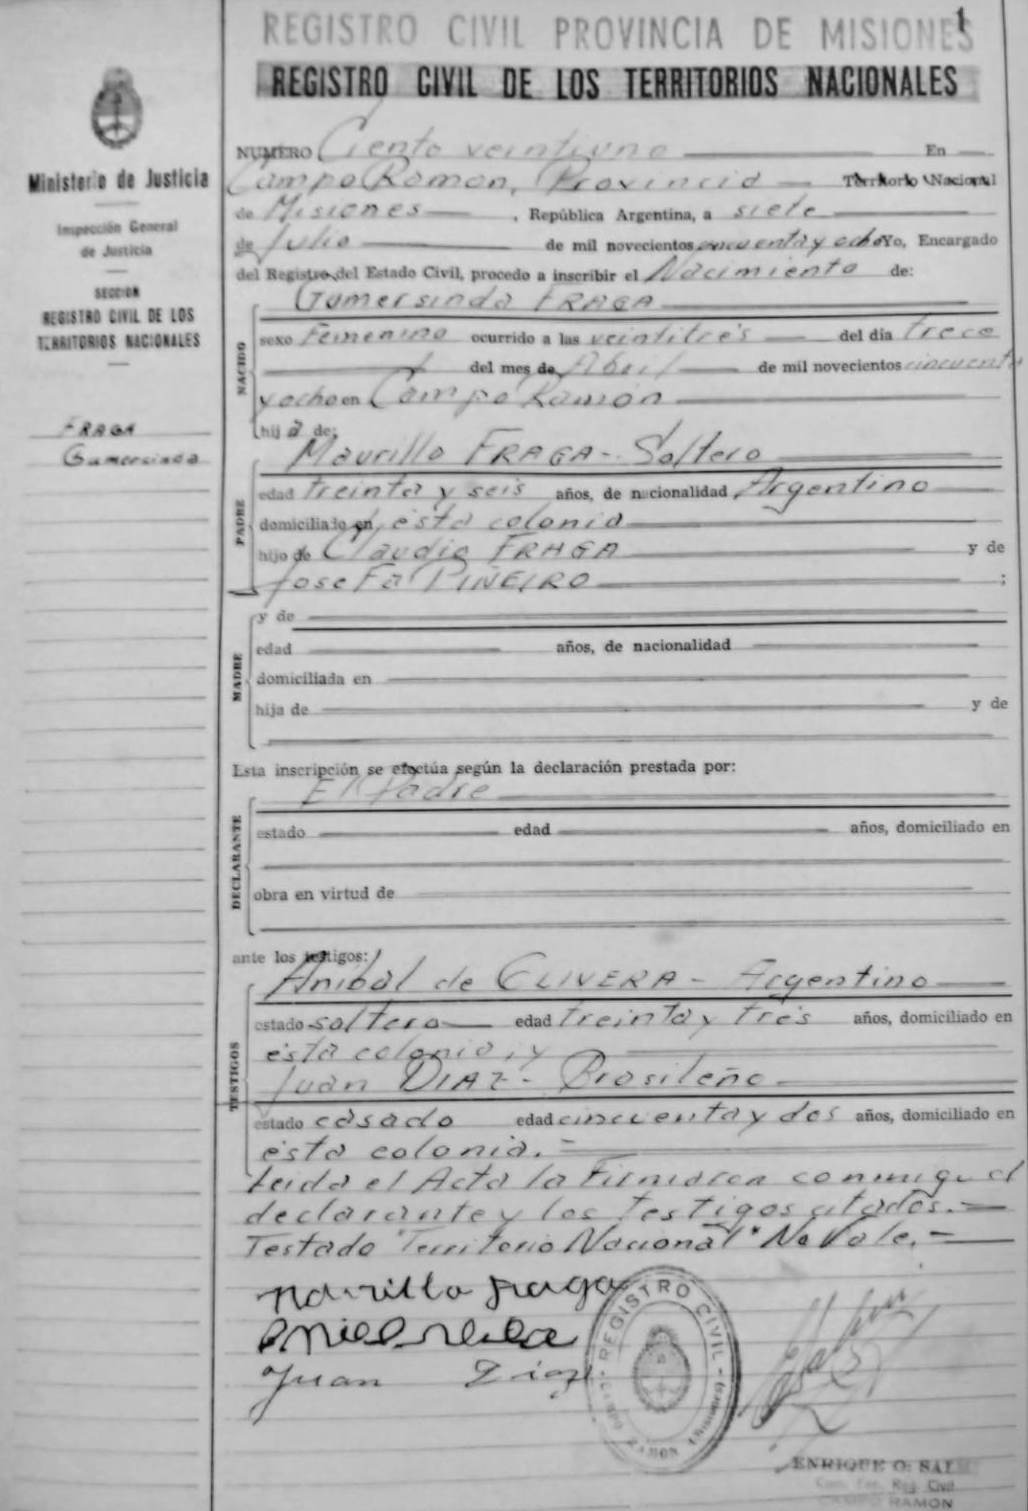 1
REGISTRO CIVIL PROVINCIA DE MISIONES
REGISTRO CIVIL DE LOS TERRITORIOS NACIONALES
Ministerio de Justicia
Inspección General
de Justicia
SECCION
REGISTRO CIVIL DE LOS
TERRITORIOS NACIONALES
FRAGA
Gumersinda
NUMERO Ciento veintiuno En
Campo Ramon, Provincia Territorio Nacional
de Misiones , República Argentina, a siete
de Julio de mil novecientos cincuenta y ocho Yo, Encargado
del Registro del Estado Civil, procedo a inscribir el Nacimiento de:
NACIDO
Gumersinda FRAGA
sexo Femenino ocurrido a las veintitrés del día trece
del mes de Abril de mil novecientos cincuenta
y ocho en Campo Ramón
hija de:
PADRE
Maurillo FRAGA - Soltero
edad treinta y seis años, de nacionalidad Argentino
domiciliado en ésta colonia
hijo de Claudio FRAGA y de
Josefa PIÑEIRO ;
MADRE
y de
edad años, de nacionalidad
domiciliada en
hija de y de
Esta inscripción se efectúa según la declaración prestada por:
DECLARANTE
El Padre
estado edad años, domiciliado en
obra en virtud de
ante los testigos:
TESTIGOS
Anibal de OLIVERA - Argentino
estado soltero edad treinta y tres años, domiciliado en
ésta colonia, y
Juan DIAZ - Brasileño
estado casado edad cincuenta y dos años, domiciliado en
ésta colonia. =
Leida el Acta la Firmaron conmigo el
declarante y los testigos citados. =
Testado "Territorio Nacional" No Vale. =
Maurillo fraga
Juan Diaz
REGISTRO CIVIL
CAMPO RAMON (Misiones)
ENRIQUE O. SAL
Reg. Civil
CAMPO RAMON